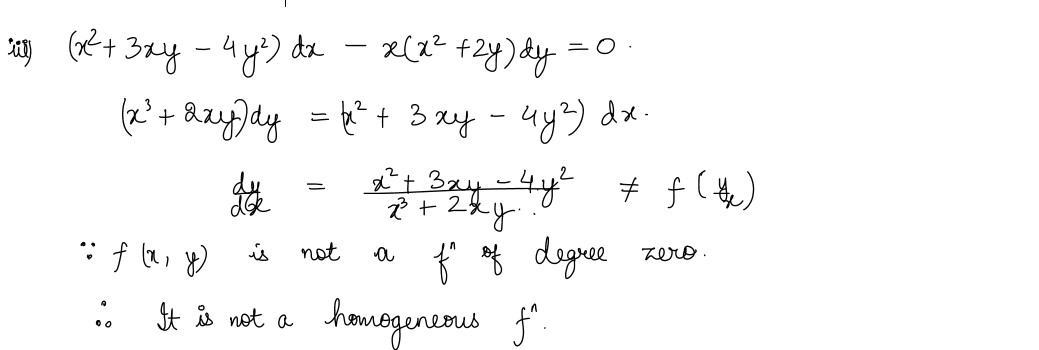 iii) (x² + 3xy – 4y²) dx – x(x² + 2y) dy = 0 .
(x³ + 2xy) dy = (x² + 3xy – 4y²) dx .
dy/dx = (x² + 3xy – 4y²)/(x³ + 2xy) ≠ f (y/x)
∵ f (x, y) is not a fⁿ of degree zero.
∴ It is not a homogeneous fⁿ.